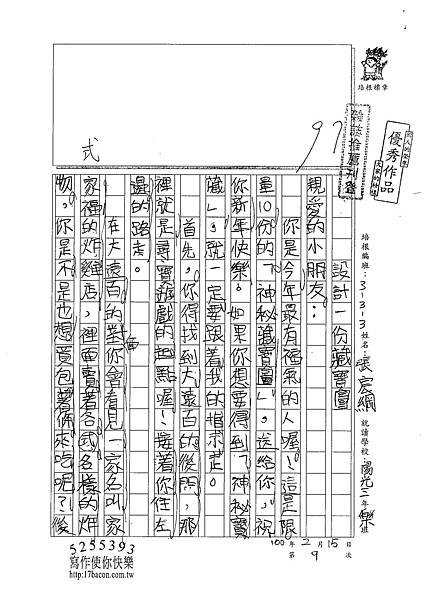 培根標章
優秀作品
培根編班：3-3-3
姓名：
就讀學校：陽光二年樂班
97
設計一份藏寶圖
親愛的小朋友：
你是今年最有福氣的人喔！這是限
量10份的「神秘藏寶圖」，送給你，祝
你新年快樂。如果你想要得到「神秘寶
藏」，就一定要跟著我的指示走。
首先，你得找到大遠百的後門，那
裡就是尋寶遊戲的起點喔！接著你往左
邊的路走。
在大遠百的對面你會看見一家名叫家
家福的炸雞店，裡面賣著各式各樣的炸
物，你是不是也想買包薯條來吃呢？後
式
100年2月15日
第9次
5255393
寫作使你快樂
http://17bacon.com.tw